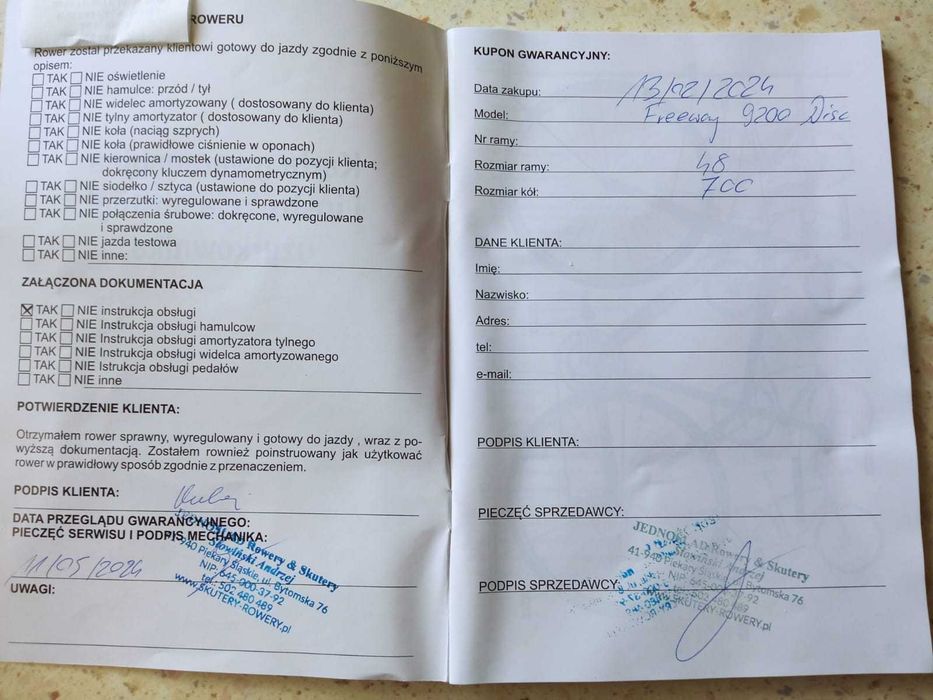 ROWERU
Rower został przekazany klientowi gotowy do jazdy zgodnie z poniższym
opisem:
TAK NIE oświetlenie
TAK NIE hamulce: przód / tył
TAK NIE widelec amortyzowany ( dostosowany do klienta)
TAK NIE tylny amortyzator ( dostosowany do klienta)
TAK NIE koła (naciąg szprych)
TAK NIE koła (prawidłowe ciśnienie w oponach)
TAK NIE kierownica / mostek (ustawione do pozycji klienta;
dokręcony kluczem dynamometrycznym)
TAK NIE siodełko / sztyca (ustawione do pozycji klienta)
TAK NIE przerzutki: wyregulowane i sprawdzone
TAK NIE połączenia śrubowe: dokręcone, wyregulowane
i sprawdzone
TAK NIE jazda testowa
TAK NIE inne:
ZAŁĄCZONA DOKUMENTACJA
TAK NIE instrukcja obsługi
TAK NIE Instrukcja obsługi hamulcow
TAK NIE Instrukcja obsługi amortyzatora tylnego
TAK NIE Instrukcja obsługi widelca amortyzowanego
TAK NIE Istrukcja obsługi pedałów
TAK NIE inne
POTWIERDZENIE KLIENTA:
Otrzymałem rower sprawny, wyregulowany i gotowy do jazdy , wraz z po-
wyższą dokumentacją. Zostałem rownież poinstruowany jak użytkować
rower w prawidłowy sposób zgodnie z przenaczeniem.
PODPIS KLIENTA:
DATA PRZEGLĄDU GWARANCYJNEGO:
PIECZĘĆ SERWISU I PODPIS MECHANIKA:
11/05/2024
UWAGI:
JEDNOŚLAD Rowery & Skutery
Słowiński Andrzej
41-940 Piekary Śląskie, ul. Bytomska 76
NIP: 645-000-37-92
tel. 502 480 489
www.SKUTERY-ROWERY.pl
KUPON GWARANCYJNY:
Data zakupu: 13/02/2024
Model: Freeway 9200 Disc
Nr ramy:
Rozmiar ramy: 48
Rozmiar kół: 700
DANE KLIENTA:
Imię:
Nazwisko:
Adres:
tel:
e-mail:
PODPIS KLIENTA:
PIECZĘĆ SPRZEDAWCY:
PODPIS SPRZEDAWCY:
JEDNOŚLAD Rowery & Skutery
Słowiński Andrzej
41-940 Piekary Śląskie, ul. Bytomska 76
NIP: 645-000-37-92
tel. 502 480 489
SKUTERY-ROWERY.pl